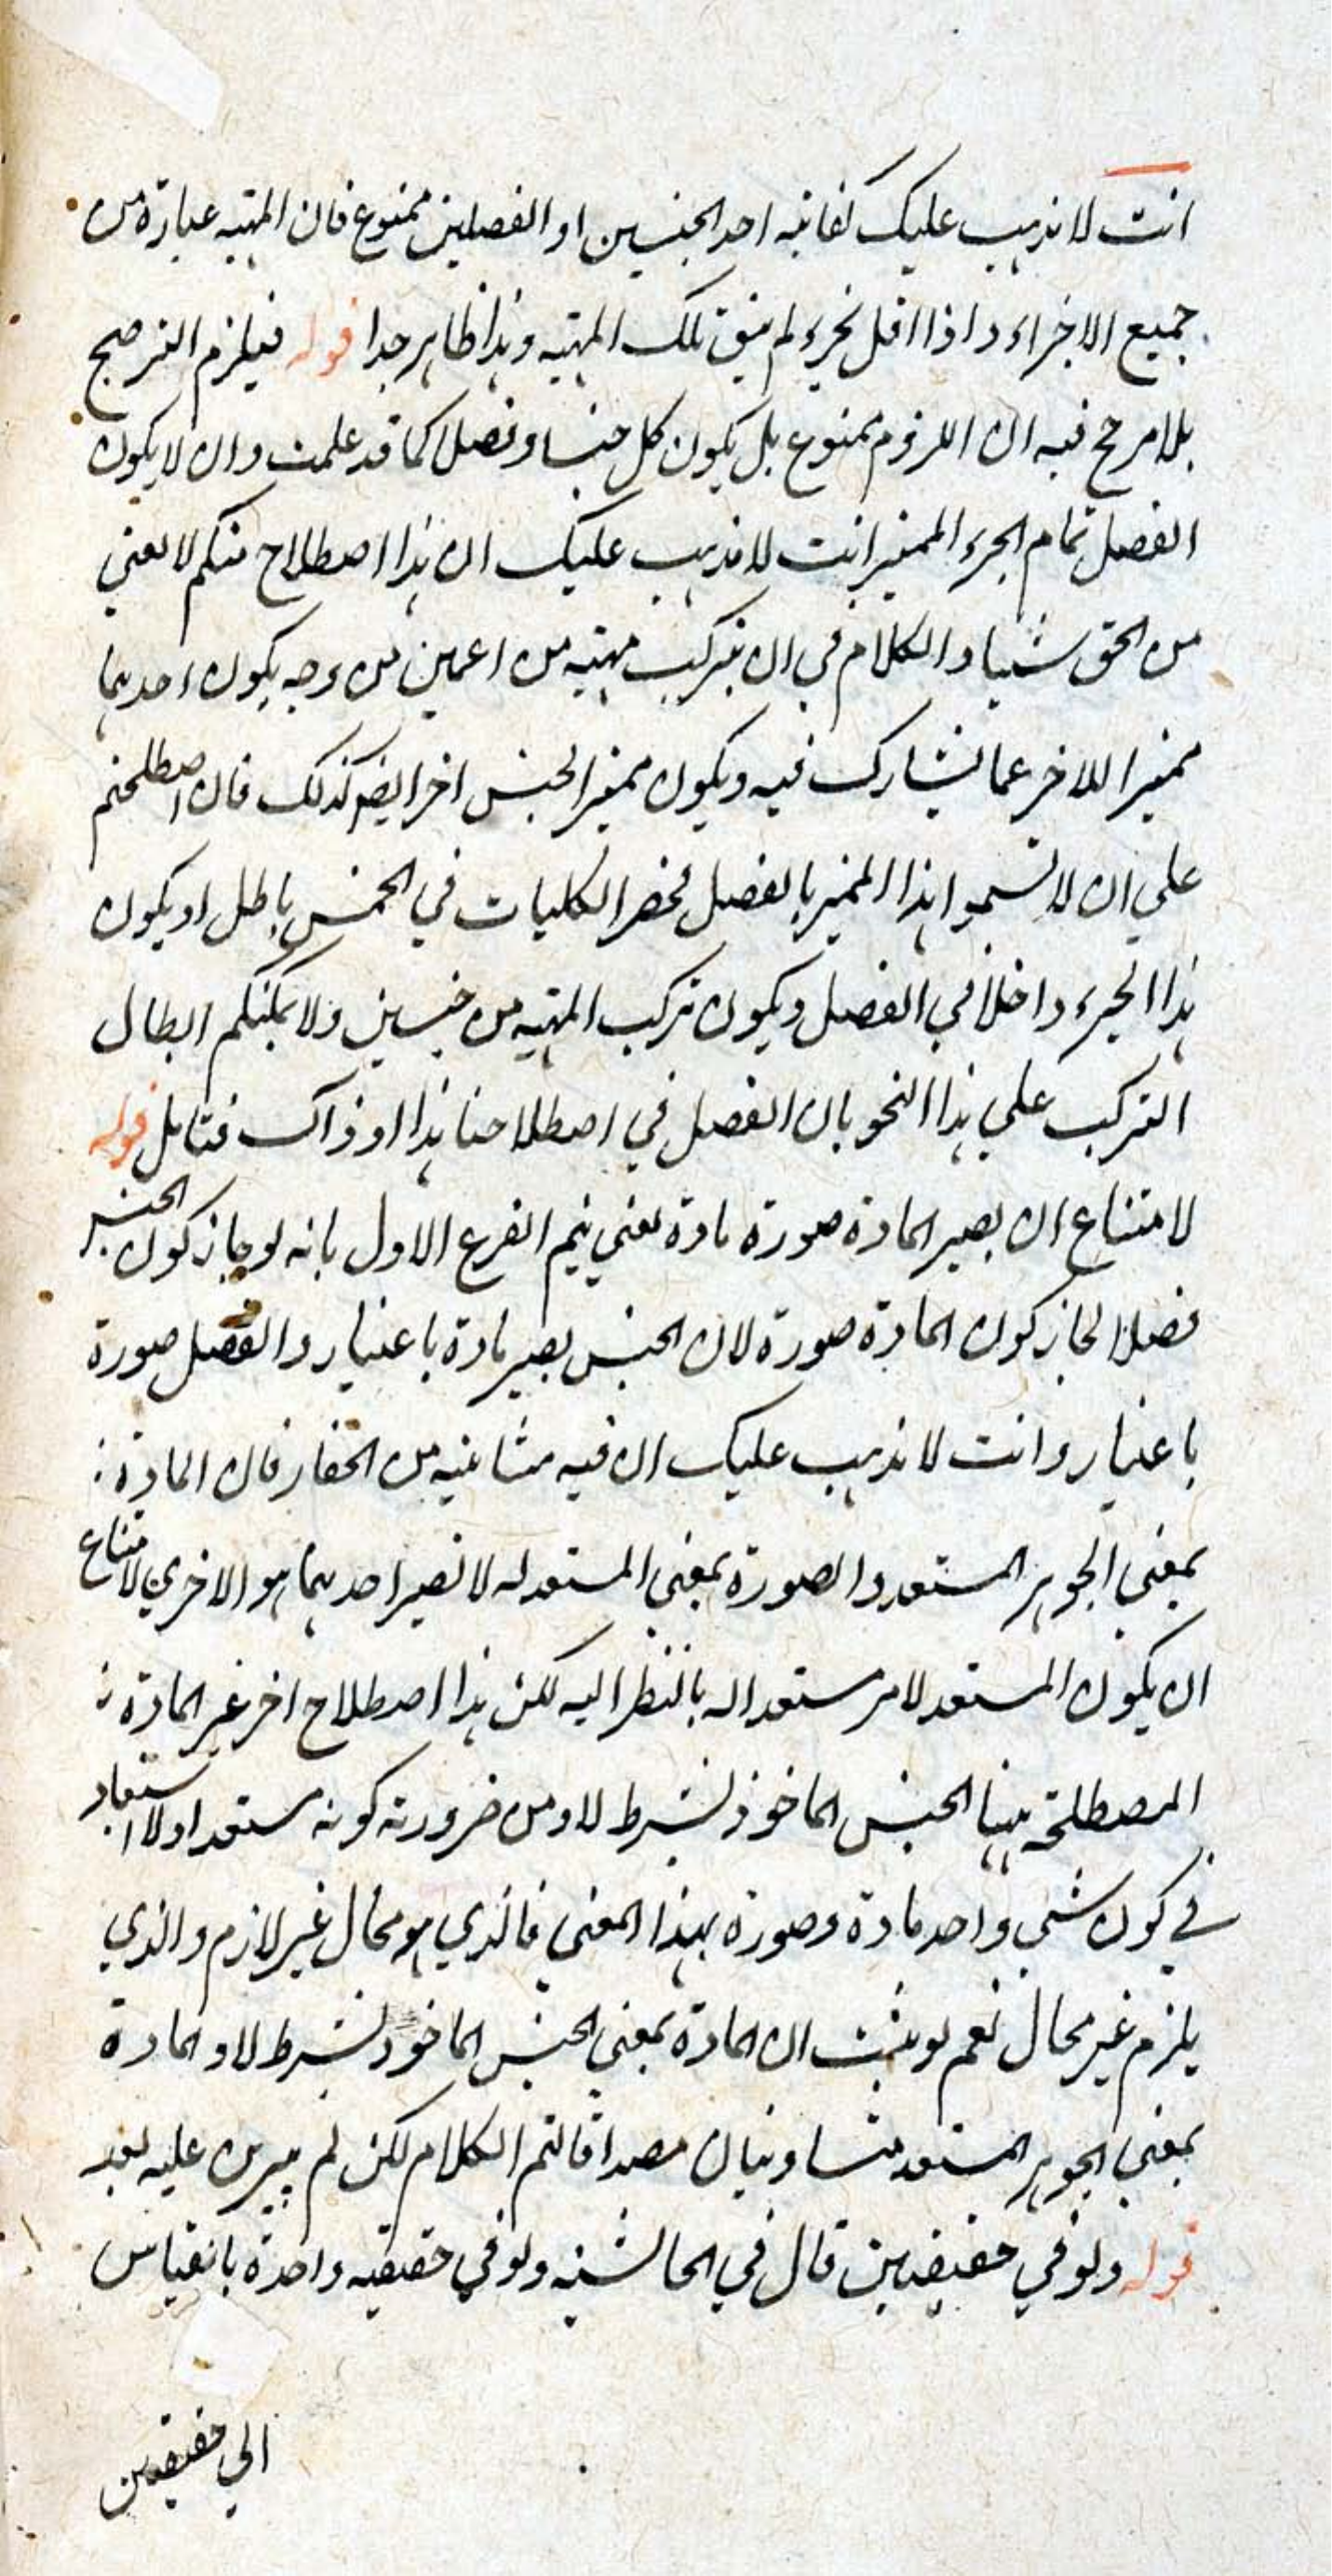 انت لا يذهب عليك كفاية احد الجنسين او الفصلين ممنوع فان المهية عبارة من
جميع الاجزاء و اذا اقل بجزء لم يبق تلك المهية وهذا ظاهر جدا قوله فيلزم الترجيح
بلا مرجح فيه ان اللزوم ممنوع بل يكون كل جنسا وفصلا كما قد علمت وان لا يكون
الفصل تمام الجزء المميز انت لا يذهب عليك ان هذا اصطلاح منكم لا يغني
من الحق شيئا والكلام في ان يتركب مهية من اعمين من وجه يكون احدهما
مميزا للاخر عما يشارك فيه ويكون مميز الجنس اخر ايضا كذلك فان اصطلحتم
على ان لا تسموا هذا المميز بالفصل فحصر الكليات في الخمس باطل او يكون
هذا الجزء داخلا في الفصل ويكون تركب المهية من جنسين ولا يمكنكم ابطال
التركب على هذا النحو بان الفصل في اصطلاحنا هذا او ذاك فتامل قوله
لامتناع ان يصير المادة صورة مادة يعني يتم الفرع الاول بانه لو جاز كون الجنس
فصلا لجاز كون المادة صورة لان الجنس يصير مادة باعتبار والفصل صورة
باعتبار وانت لا يذهب عليك ان فيه مثانية من الخفاء فان المادة
بمعنى الجوهر المستعد والصورة بمعنى المستعد له لا تصير احديهما هو الاخرى لامتناع
ان يكون المستعد لامر مستعدا له بالنظر اليه لكن هذا اصطلاح اخر غير المادة
المصطلحة ههنا الجنس الماخوذ بشرط لا ومن ضرورته كونه مستعدا ولا استبعاد
في كون شيء واحد مادة وصورة بهذا المعنى فالذي هو محال غير لازم والذي
يلزم غير محال نعم لو يثبت ان المادة بمعنى الجنس الماخوذ بشرط لا والمادة
بمعنى الجوهر المستعد متساويتان مصداقا لتم الكلام لكن لم يبرهن عليه بعد
قوله ولو في حقيقتين قال في الحاشية ولو في حقيقية واحدة بالقياس
الى حقيقتين